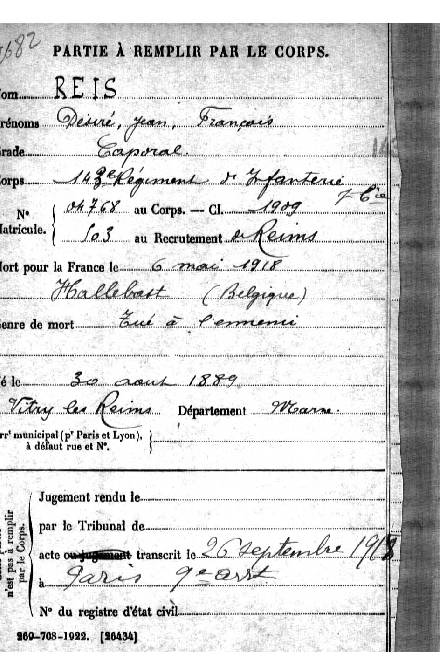 682
PARTIE À REMPLIR PAR LE CORPS.
om REIS
rénoms Désiré, Jean, François
rade Caporal.
orps 143e Régiment d'Infanterie
7 Cie
N° 04768 au Corps. — Cl. 1909
atricule. 503 au Recrutement de Reims
ort pour la France le 6 mai 1918
Hallebast (Belgique)
enre de mort Tué à l'ennemi
é le 30 aout 1889
Vitry les Reims Département Marne.
rrt municipal (pr Paris et Lyon),
à défaut rue et N°.
Jugement rendu le
par le Tribunal de
acte ou jugement transcrit le 26 septembre 1918
à Paris 9e arrt
N° du registre d'état civil
n'est pas à remplir
par le Corps.
269-708-1922. [26434]